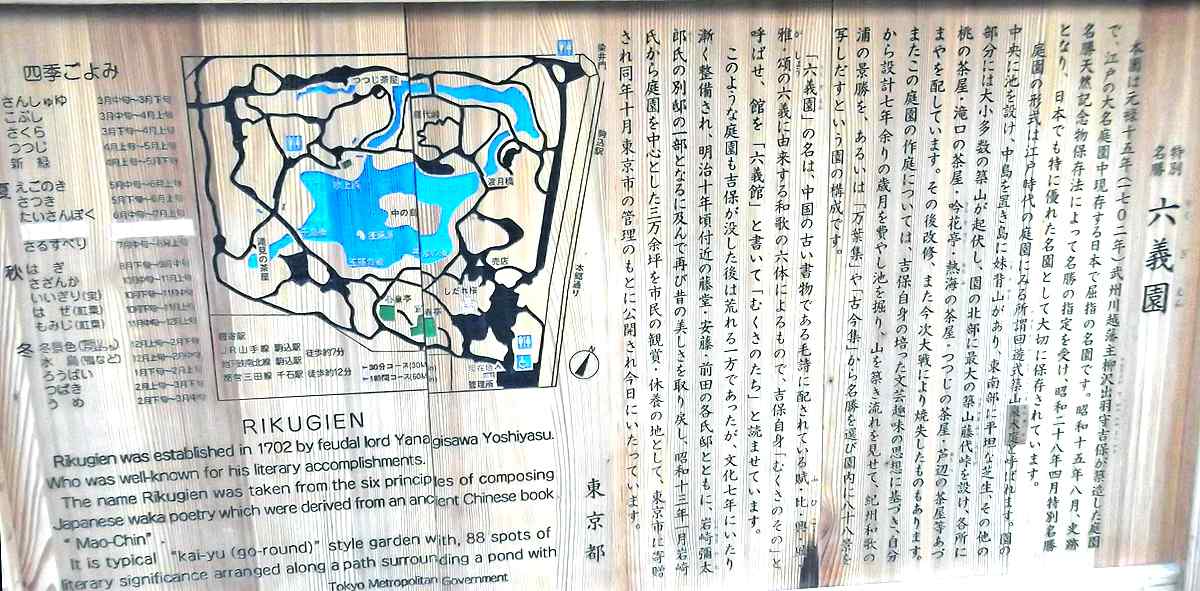 特別
名勝
六義園
りくぎえん
本園は元禄十五年(一七〇二年)武州川越藩主柳沢出羽守吉保が築造した庭園
で、江戸の大名庭園中現存する日本で屈指の名園です。昭和十五年八月、史蹟
名勝天然記念物保存法によって名勝の指定を受け、昭和二十八年四月特別名勝
となり、日本でも特に優れた名園として大切に保存されています。
庭園の形式は江戸時代の庭園にみる所謂回遊式築山泉水庭と呼ばれます。園の
中央に池を設け、中島を置き島に妹背山があり、東南部に平坦な芝生、その他の
部分には大小多数の築山が起伏し、園の北部に最大の築山藤代峠を設け、各所に
桃の茶屋・滝口の茶屋・吟花亭・熱海の茶屋・つつじの茶屋・芦辺の茶屋等あづ
まやを配しています。その後改修、また今次大戦により焼失したものもあります。
またこの庭園の作庭については、吉保自身の培った文芸趣味の思想に基づき、自分
から設計七年余りの歳月を費やし池を掘り、山を築き流れを見せて、紀州和歌の
浦の景勝を、あるいは「万葉集」や「古今集」から名勝を選び園内に八十八景を
写しだすという園の構成です。
「六義園」の名は、中国の古い書物である毛詩に配されている賦・比・興・風・
雅・頌の六義に由来する和歌の六体によるもので、吉保自身「むくさのその」と
呼ばせ、館を「六義館」と書いて「むくさのたち」と読ませています。
このような庭園も吉保が没した後は荒れる一方であったが、文化七年にいたり
漸く整備され、明治十年頃付近の藤堂・安藤・前田の各氏邸とともに、岩崎彌太
郎氏の別邸の一部となるに及んで再び昔の美しさを取り戻し、昭和十三年一月岩崎
氏から庭園を中心とした三万余坪を市民の観賞・休養の地として、東京市に寄贈
され同年十月東京市の管理のもとに公開され今日にいたっています。
東京都
染井門
駒込駅
本郷通り
つつじ茶屋
藤代峠
渡月橋
吹上浜
中の島
蓬萊島
滝見の茶屋
売店
しだれ桜
心泉亭
管理所
最寄駅
JR山手線 駒込駅
徒歩約7分
都営三田線 千石駅 徒歩約12分
30分コース
1時間コース
四季ごよみ
さんしゅゆ 3月中旬〜3月下旬
こぶし 3月中旬〜4月上旬
さくら 3月下旬〜4月上旬
つつじ 4月上旬〜5月上旬
新緑 4月上旬〜5月下旬
夏 えごのき 5月中旬〜6月上旬
さつき 5月下旬〜6月上旬
たいさんぼく 6月中旬〜7月上旬
さるすべり
秋 はぎ
さざんか
いいぎり(実)
はぜ(紅葉)
もみじ(紅葉) 11月中旬〜12月上旬
冬 冬景色
水鳥(鴨など)
ろうばい 1月下旬〜2月下旬
つばき 2月上旬〜3月下旬
うめ 2月下旬〜3月中旬
RIKUGIEN
Rikugien was established in 1702 by feudal lord Yanagisawa Yoshiyasu.
Who was well-known for his literary accomplishments.
The name Rikugien was taken from the six principles of composing
Japanese waka poetry which were derived from an ancient Chinese book
"Mao-Chin".
It is typical "kai-yu (go-round)" style garden with, 88 spots of
literary significance arranged along a path surrounding a pond with
Tokyo Metropolitan Government